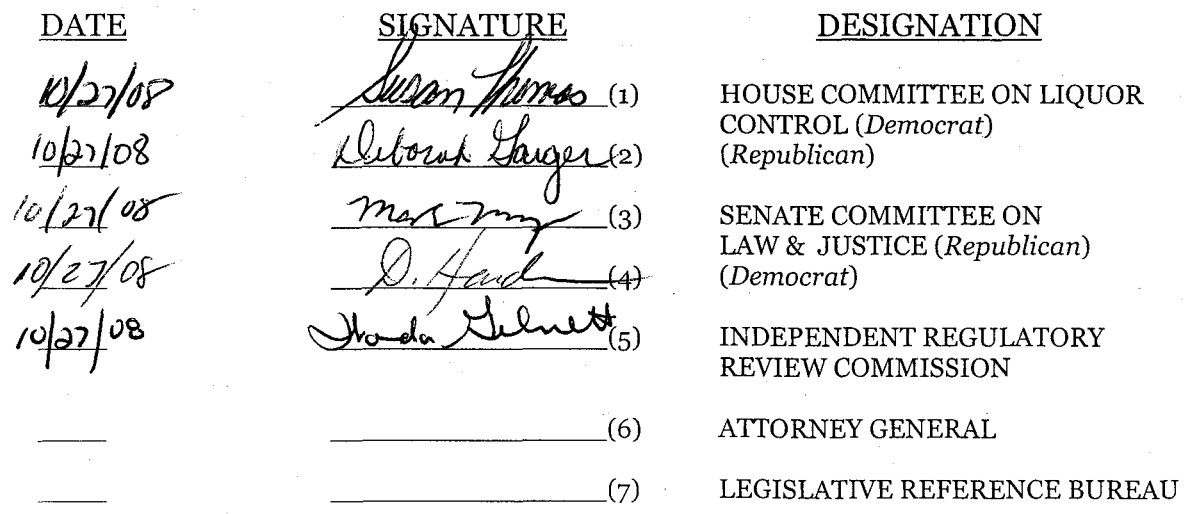 DATE SIGNATURE DESIGNATION
10/27/08 Susan Thomas (1) HOUSE COMMITTEE ON LIQUOR
CONTROL (Democrat)
10/27/08 Deborah (2) (Republican)
10/27/08 (3) SENATE COMMITTEE ON
LAW & JUSTICE (Republican)
10/27/08 D. (4) (Democrat)
10/27/08 (5) INDEPENDENT REGULATORY
REVIEW COMMISSION
(6) ATTORNEY GENERAL
(7) LEGISLATIVE REFERENCE BUREAU